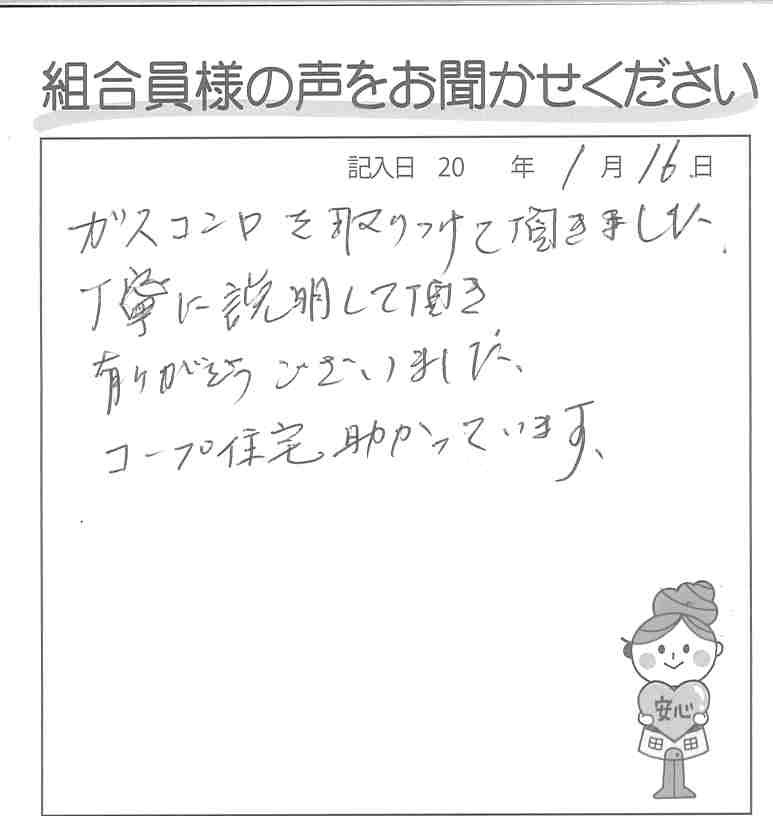 組合員様の声をお聞かせください
記入日 20 年 1月 16日
ガスコンロを取りつけて頂きました.
丁寧に説明して頂き
有りがとうございました、
コープ住宅助かっています、
安心